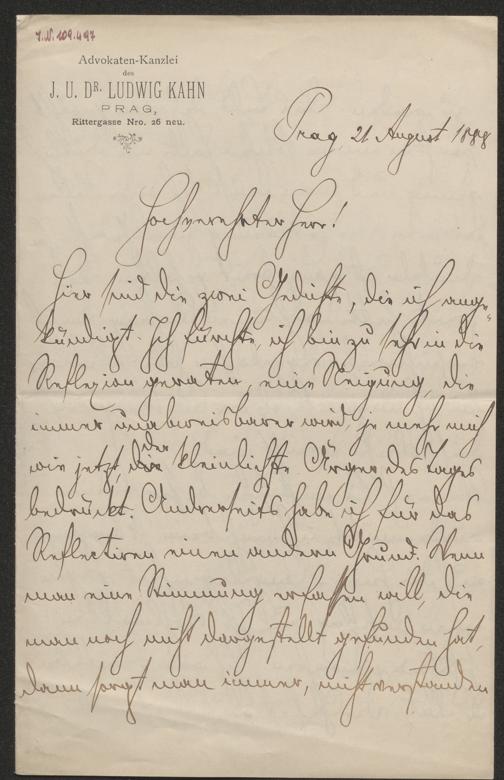 J.N. 109.497
Advokaten-Kanzlei
des
J. U. DR. LUDWIG KAHN
PRAG,
Rittergasse Nro. 26 neu.
Prag, 21 August 1888
Hochverehrter Herr!
Hier sind die zwei Gedichte, die ich ange-
kündigt. Ich fürchte, ich bin zu sehr in die
Reflexion geraten, eine Neigung, die
immer unabweisbarer wird, je mehr mich
wie jetzt, der kleinlichste Ärger des Tages
bedrückt. Anderseits habe ich für das
Reflectiren einen andern Grund. Wenn
man eine Stimmung erfassen will, die
man noch nicht dargestellt gefunden hat,
dann sorgt man immer, nicht verstanden